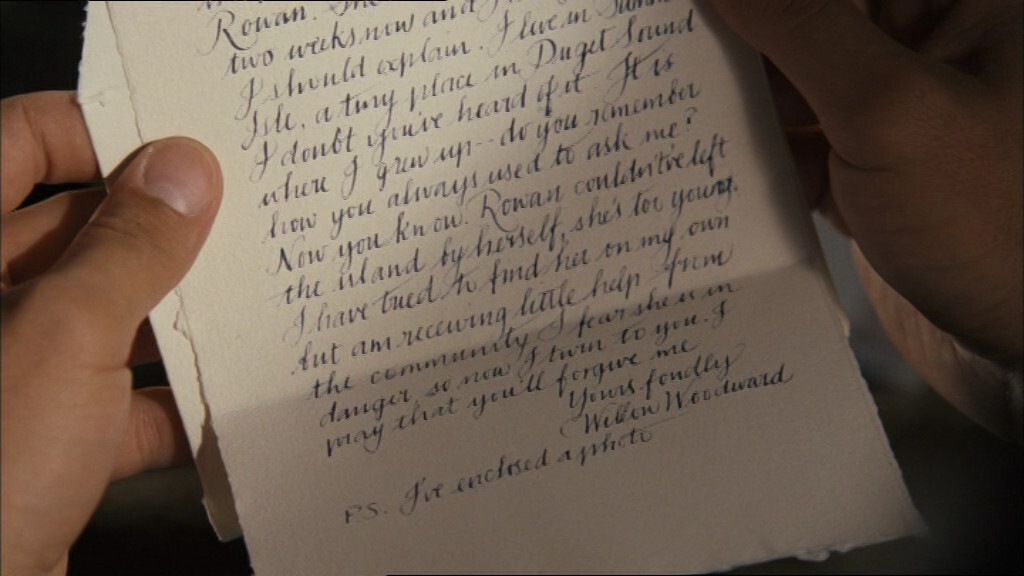 Rowan. She
two weeks now and I
I should explain. I live in Summer
Isle, a tiny place in Puget Sound
I doubt you've heard of it. It is
where I grew up-- do you remember
how you always used to ask me?
Now you know. Rowan couldn't've left
the island by herself, she's too young.
I have tried to find her on my own
but am receiving little help from
the community. I fear she is in
danger so now I turn to you. I
pray that you'll forgive me
Yours fondly
Willow Woodward
P.S. I've enclosed a photo